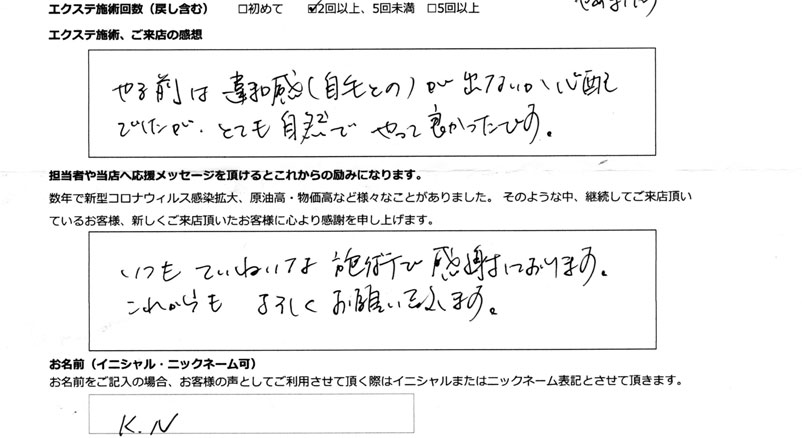 エクステ施術回数（戻し含む） □初めて ☑2回以上、5回未満 □5回以上
エクステ施術、ご来店の感想
やる前は違和感(自毛との)が出ないか心配
でしたが、とても自然で やって良かったです。
担当者や当店へ応援メッセージを頂けるとこれからの励みになります。
数年で新型コロナウィルス感染拡大、原油高・物価高など様々なことがありました。 そのような中、継続してご来店頂い
ているお客様、新しくご来店頂いたお客様に心より感謝を申し上げます。
いつも ていねいな 施術で 感謝しております。
これからも よろしく お願い致します。
お名前（イニシャル・ニックネーム可）
お名前をご記入の場合、お客様の声としてご利用させて頂く際はイニシャルまたはニックネーム表記とさせて頂きます。
K.N